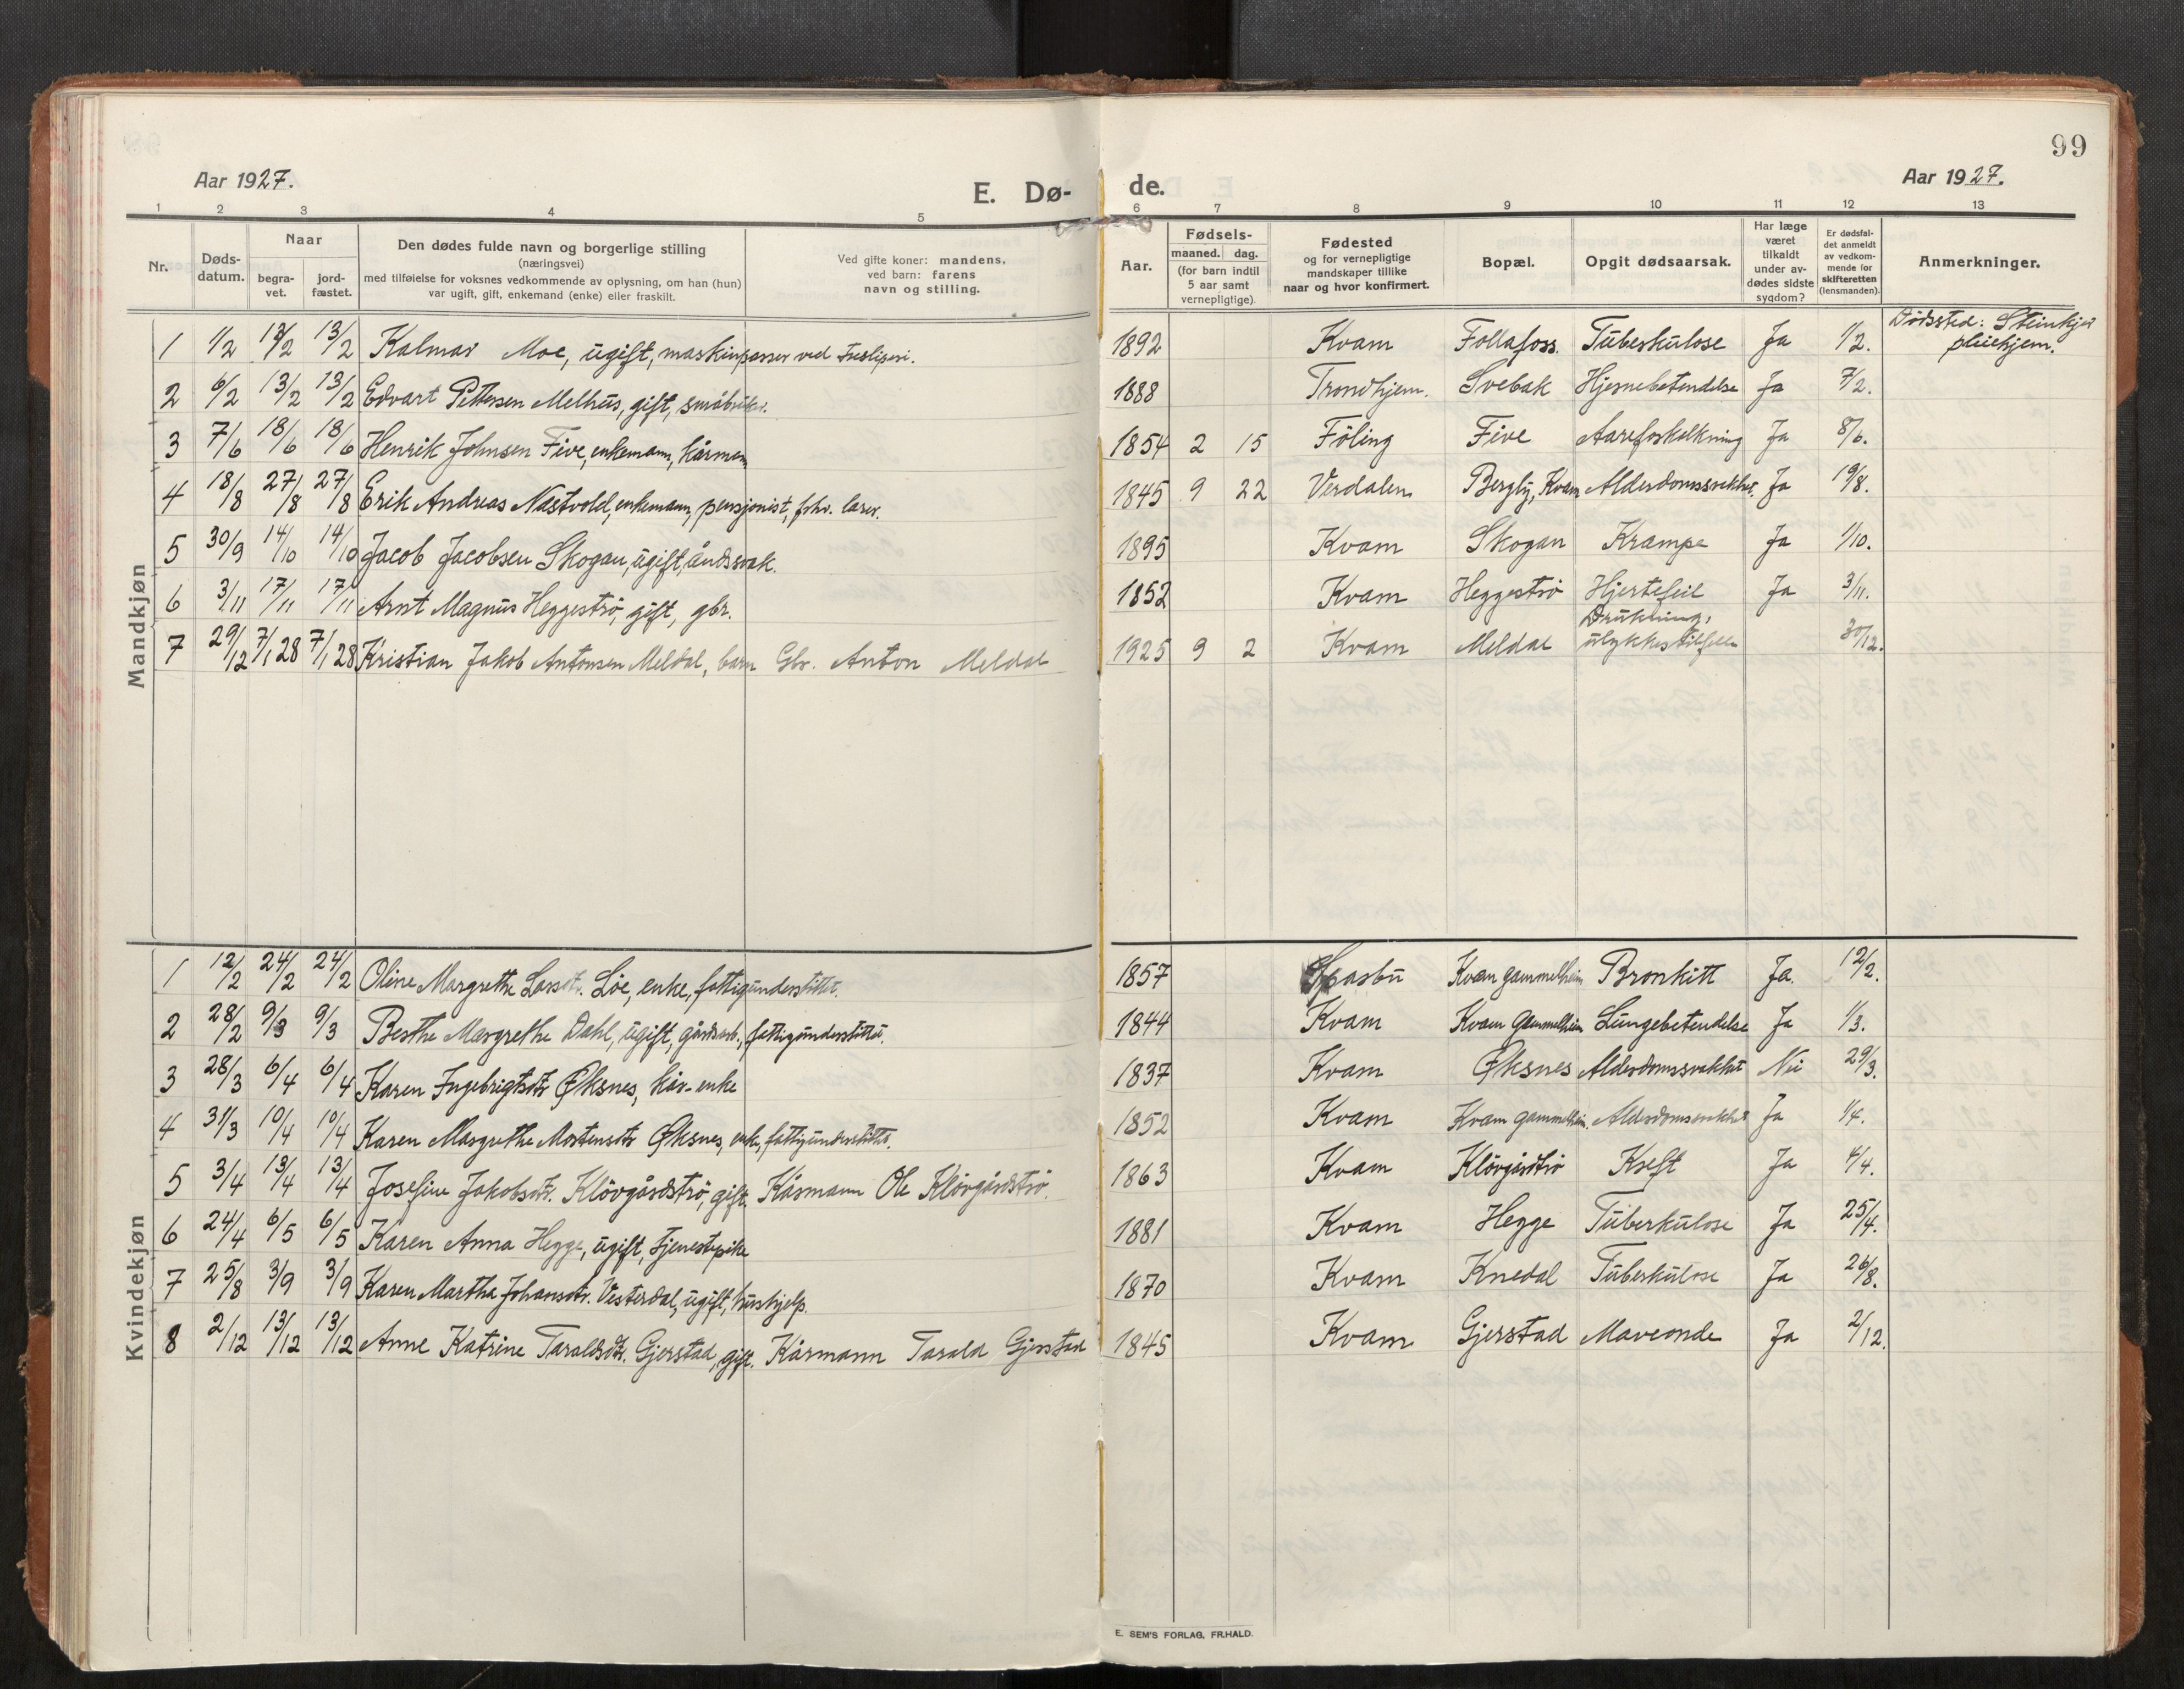 99
Aar 1927.
E. Dø-
de.
Aar 1927.
1 2 3 4 5 6 7 8 9 10 11 12 13
Nr.
Døds-
datum.
Naar
begra-
vet.
jord-
fæstet.
Den dødes fulde navn og borgerlige stilling
(næringsvei)
med tilføielse for voksnes vedkommende av oplysning, om han (hun)
var ugift, gift, enkemand (enke) eller fraskilt.
Ved gifte koner: mandens,
ved barn: farens
navn og stilling.
Aar.
Fødsels-
maaned. dag.
(for barn indtil
5 aar samt
vernepligtige).
Fødested
og for vernepligtige
mandskaper tillike
naar og hvor konfirmert.
Bopæl.
Opgit dødsaarsak.
Har læge
været
tilkaldt
under av-
dødes sidste
sygdom?
Er dødsfal-
det anmeldt
av vedkom-
mende for
skifteretten
(lensmanden).
Anmerkninger.
Mandkjøn
1 1/2 13/2 13/2 Kalmar Moe, ugift, maskinpasser ved 1892 Kvam Follafoss. Tuberkulose Ja 1/2. Dødssted: Steinkjer
pleiehjem.
2 6/2 13/2 13/2 Edvart Pettersen Melhus, gift, småbruker. 1888 Trondhjem. Svebak Hjernebetendelse Ja 7/2.
3 7/6 18/6 18/6 Henrik Johnsen Five, enkemann, kårmann 1854 2 15 Föling Five Aareforkalkning Ja 8/6.
4 18/8 27/8 27/8 Erik Andreas Nastvold, enkemann, pensjonist, frhv. lærer. 1845 9 22 Verdalen Bergly, Kvam Alderdomssvakhet. Ja 19/8.
5 30/9 14/10 14/10 Jacob Jacobsen Skogan, ugift, åndssvak. 1895 Kvam Skogan Krampe Ja 1/10.
6 3/11 17/11 17/11 Arnt Magnus Heggeströ, gift, gbr. 1852 Kvam Heggeströ Hjertefeil Ja 3/11.
7 29/12 7/1 28 7/1 28 Kristian Jakob Antonsen Meldal, barn Gbr. Anton Meldal 1925 9 2 Kvam Meldal Drukning,
ulykkestilfelle 30/12.
Kvindekjøn
1 12/2 24/2 24/2 Oline Margrethe Larsdtr. Löe, enke, fattigunderstöttet. 1857 Sparbu Kvam gammelheim Bronkitt Ja. 12/2.
2 28/2 9/3 9/3 Berthe Margrethe Dahl, ugift, gårdsarb., fattigunderstöttet. 1844 Kvam Kvam Gammelheim Lungebetendelse Ja 1/3.
3 28/3 6/4 6/4 Karen Ingebrigtsdtr Øksnes, kår-enke 1837 Kvam Øksnes Alderdomssvakhet Nei 29/3.
4 31/3 10/4 10/4 Karen Margrethe Mortensdtr Øksnes, enke, fattigunderstöttet. 1852 Kvam Kvam gammelheim. Alderdomssvakhet Ja 1/4.
5 3/4 13/4 13/4 Josefine Jakobsdtr. Klövgårdströ, gift. Kårmann Ole Klövgårdströ. 1863 Kvam Klövgårdströ Kreft Ja 4/4.
6 24/4 6/5 6/5 Karen Anna Hegge, ugift, tjenestepike 1881 Kvam Hegge Tuberkulose Ja 25/4.
7 25/8 3/9 3/9 Karen Martha Johansdtr. Vesterdal, ugift, hushjelp. 1870 Kvam Knedal Tuberkulose Ja 26/8.
8 2/12 13/12 13/12 Anne Katrine Taraldsdtr. Gjerstad, gift. Kårmann Tarald Gjerstad 1845 Kvam Gjerstad Maveonde Ja 2/12.
E. SEM'S FORLAG, FR.HALD.